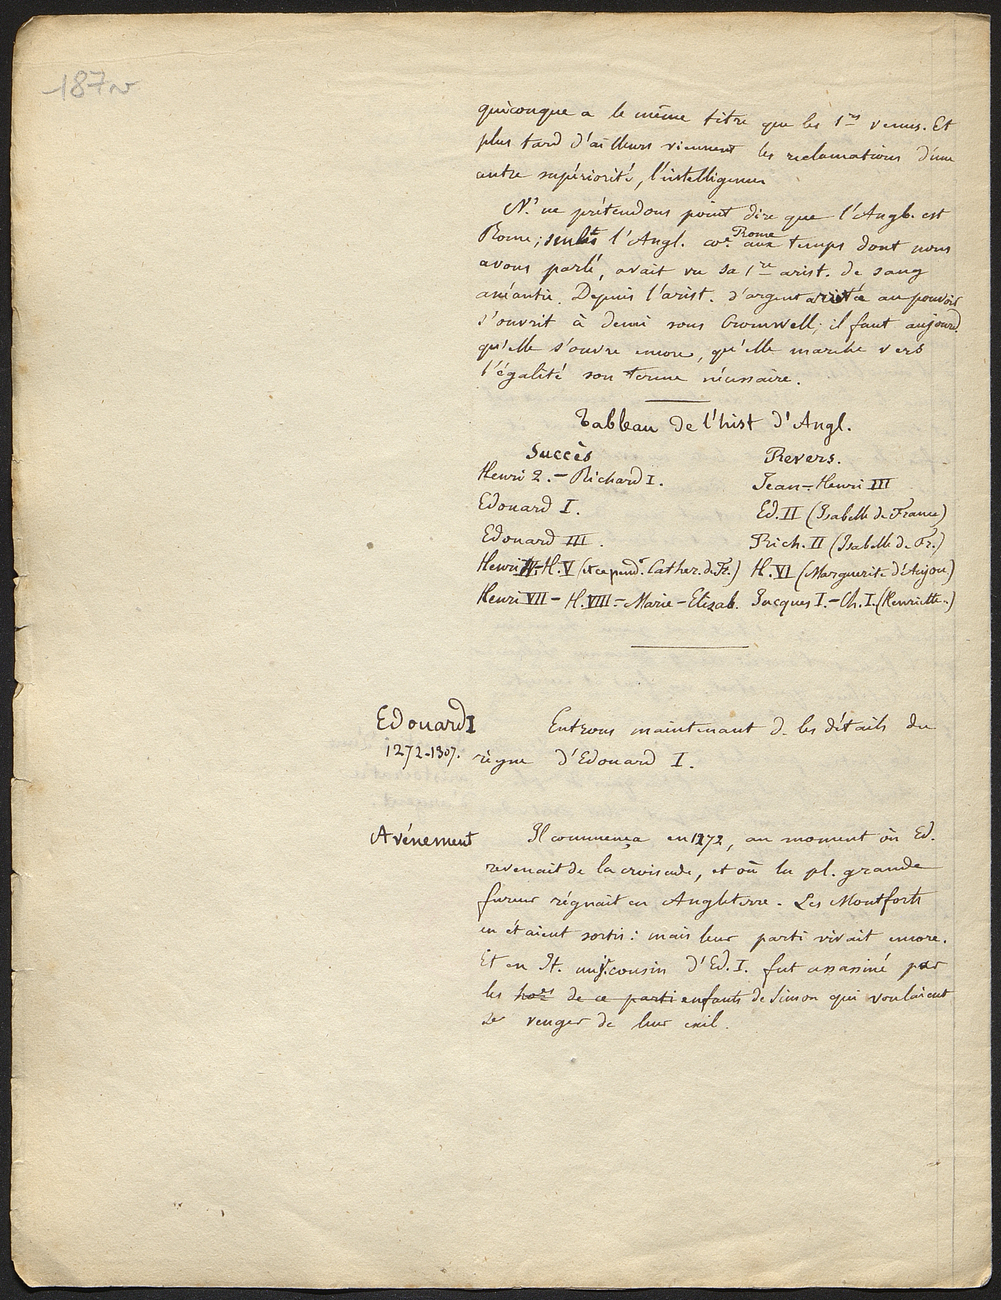 187v
quiconque a le même titre que les 1ers venus. Et
plus tard d'ailleurs viennent les réclamations d'une
autre supériorité, l'intelligence
Ns ne prétendons point dire que l'Angl. est
Rome; seult l'Angl. co᷒e Rome aux temps dont nous
avons parlé, avait vu sa 1re arist. de sang
anéantie. Depuis l'arist. d'argent arrivée au pouvoir
s'ouvrit à demi sous Cromwell; il faut aujourd.
qu'elle s'ouvre encore, qu'elle marche vers
l'égalité son terme nécessaire.
Tableau de l'hist d'Angl.
Succès Revers.
Henri 2. - Richard I. Jean - Henri III
Edouard I. Ed. II (Isabelle de France)
Edouard III. Rich. II (Isabelle de Fr.)
Henri IV - H. V (et cepend. Cather. de Fr.) H. VI (Marguerite d'Anjou)
Henri VII - H. VIII - Marie - Elizab. Jacques I. - Ch. I. (Henriette)
Edouard I Entrons maintenant d. les détails du
1272-1307. règne d'Edouard I.
Avénement Il commença en 1272, au moment où Ed.
revenait de la croisade, et où la pl. grande
fureur régnait en Angleterre. Les Montforts
en étaient sortis: mais leur parti vivait encore.
Et en It. un cousin d'Ed. I. fut assassiné par
les ho᷒es de ce parti enfants de Simon qui voulaient
se venger de leur exil.